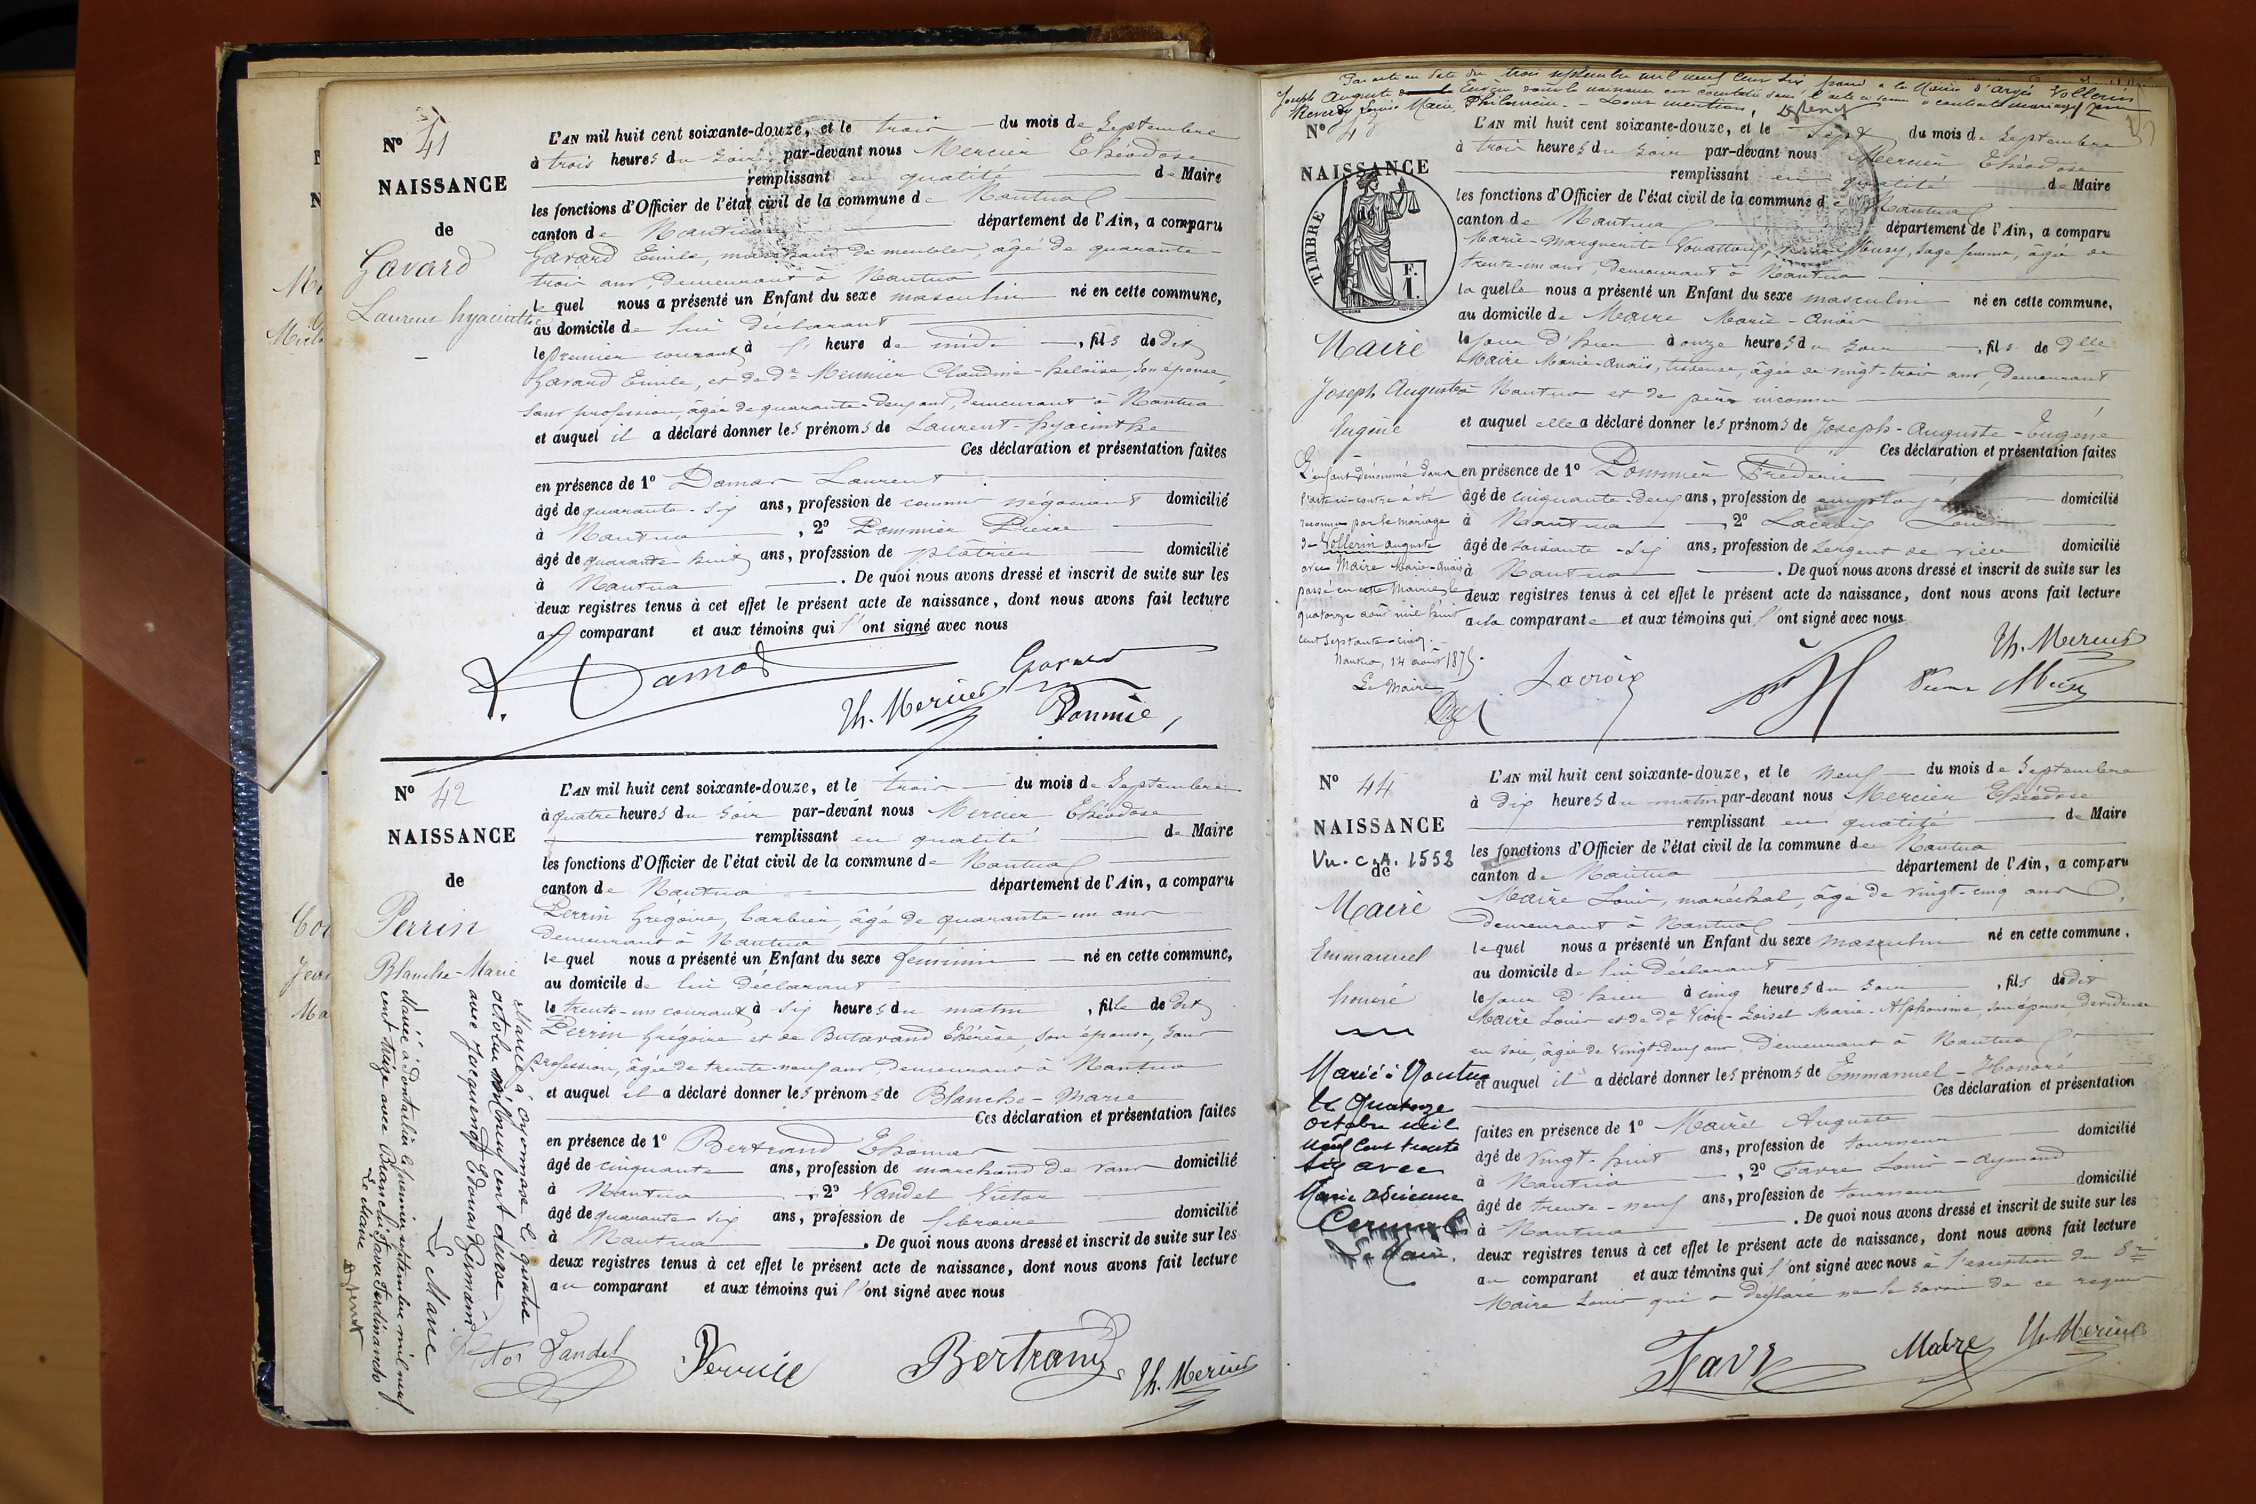 Nº 41
NAISSANCE
de
Gavard
Laurent hyacinthe
L'AN mil huit cent soixante-douze, et le trois du mois de Septembre
à trois heures du soir par-devant nous Mercier Théodose
remplissant en qualité de Maire
les fonctions d'Officier de l'état civil de la commune de Nantua
canton de Nantua département de l'Ain, a comparu
Gavard Emile, marchand de meubles, âgé de quarante-
trois ans, demeurant à Nantua
le quel nous a présenté un Enfant du sexe masculin né en cette commune,
au domicile de lui déclarant
le premier courant à l' heure de midi, fils de dit
Gavard Emile, et de de Meunier Claudine-héloïse, son épouse,
sans profession, âgée de quarante-deux ans, demeurant à Nantua
et auquel il a déclaré donner les prénoms de Laurent-hyacinthe
Ces déclaration et présentation faites
en présence de 1º Damas Laurent
âgé de quarante-six ans, profession de commis négociant domicilié
à Nantua, 2º Pommier Pierre
âgé de quarante huit ans, profession de plâtrier domicilié
à Nantua. De quoi nous avons dressé et inscrit de suite sur les
deux registres tenus à cet effet le présent acte de naissance, dont nous avons fait lecture
au comparant et aux témoins qui l'ont signé avec nous
Damas Gavard
Th. Mercier Pommié
Nº 42
NAISSANCE
de
Perrin
Blanche-Marie
Marié à Oyonnax le quatre
octobre mil neuf cent douze
avec Jacquemet Edouard Germain
Le Maire
Mariée à Dortan le premier septembre mil neuf
cent treize avec Bianchi Java Ferdinando
Le Maire
L'AN mil huit cent soixante-douze, et le trois du mois de Septembre
à quatre heures du soir par-devant nous Mercier Théodose
remplissant en qualité de Maire
les fonctions d'Officier de l'état civil de la commune de Nantua
canton de Nantua département de l'Ain, a comparu
Perrin Grégoire, barbier, âgé de quarante-un ans
demeurant à Nantua
le quel nous a présenté un Enfant du sexe féminin né en cette commune,
au domicile de lui déclarant
le trente-un courant à six heures du matin, fille de dit
Perrin Grégoire et de Butavand Thérèse, son épouse, sans
profession, âgée de trente-neuf ans, demeurant à Nantua
et auquel il a déclaré donner les prénoms de Blanche-Marie
Ces déclaration et présentation faites
en présence de 1º Bertrand Thomas
âgé de cinquante ans, profession de marchand de vans domicilié
à Nantua, 2º Vandel Victor
âgé de quarante six ans, profession de libraire domicilié
à Nantua. De quoi nous avons dressé et inscrit de suite sur les
deux registres tenus à cet effet le présent acte de naissance, dont nous avons fait lecture
au comparant et aux témoins qui l'ont signé avec nous
Victor Vandel Perrin Bertrand Th. Mercier
Par acte en date du trois septembre mil neuf cent six passé à la Mairie d'Vollerin
Joseph Auguste Eugène dont la naissance est constatée dans l'acte a contracté mariage avec
Reverdy Louise Marie Philomène. - Dont mention.
Nº
NAISSANCE
TIMBRE
F.
1.
Maire
Joseph Auguste
Eugène
L'enfant dénommé dans
l'acte ci-contre a été
reconnu par le mariage
de Vollerin Auguste
avec Maire Marie-Anaïs
passé en cette Mairie le
quatorze août mil huit
cent septante-cinq.
Nantua, 14 août 1875.
Le Maire
L'AN mil huit cent soixante-douze, et le sept du mois de Septembre
à trois heures du soir par-devant nous Mercier Théodose
remplissant en qualité de Maire
les fonctions d'Officier de l'état civil de la commune de Nantua
canton de Nantua département de l'Ain, a comparu
Marie-Marguerite, sage femme, âgée de
trente-un ans, demeurant à Nantua
la quelle nous a présenté un Enfant du sexe masculin né en cette commune,
au domicile de Maire Marie-Anaïs
le jour d'hier à onze heures du soir, fils de Dlle
Maire Marie-Anaïs, tisseuse, âgée de vingt-trois ans, demeurant
à Nantua et de père inconnu
et auquel elle a déclaré donner les prénoms de Joseph-Auguste-Eugène
Ces déclaration et présentation faites
en présence de 1º Pommier Frédéric
âgé de cinquante-deux ans, profession de employé domicilié
à Nantua, 2º Lacroix Louis
âgé de soixante-six ans, profession de sergent de ville domicilié
à Nantua. De quoi nous avons dressé et inscrit de suite sur les
deux registres tenus à cet effet le présent acte de naissance, dont nous avons fait lecture
à la comparante et aux témoins qui l'ont signé avec nous
Th. Mercier
Lacroix
Nº 44
NAISSANCE
Vu. C.A. 1552
de
Maire
Emmanuel
honoré
Marié à Nantua
le quatorze
octobre mil
neuf cent trente
six avec
Marie
Le Maire.
L'AN mil huit cent soixante-douze, et le neuf du mois de Septembre
à dix heures du matin par-devant nous Mercier Théodose
remplissant en qualité de Maire
les fonctions d'Officier de l'état civil de la commune de Nantua
canton de Nantua département de l'Ain, a comparu
Maire Louis, maréchal, âgé de vingt-cinq ans,
demeurant à Nantua
le quel nous a présenté un Enfant du sexe masculin né en cette commune,
au domicile de lui déclarant
le jour d'hier à cinq heures du soir, fils de dit
Maire Louis et de de Vion-Loisel Marie-Alphonsine, son épouse, dévideuse
en soie, âgée de vingt-deux ans, demeurant à Nantua
et auquel il a déclaré donner les prénoms de Emmanuel-Honoré
Ces déclaration et présentation
faites en présence de 1º Maire Auguste
âgé de vingt-huit ans, profession de tourneur domicilié
à Nantua, 2º Favre Louis-Aymond
âgé de trente-neuf ans, profession de tourneur domicilié
à Nantua. De quoi nous avons dressé et inscrit de suite sur les
deux registres tenus à cet effet le présent acte de naissance, dont nous avons fait lecture
au comparant et aux témoins qui l'ont signé avec nous à l'exception du Sr
Maire Louis qui a déclaré ne le savoir de ce requis
Favre Maire Th. Mercier